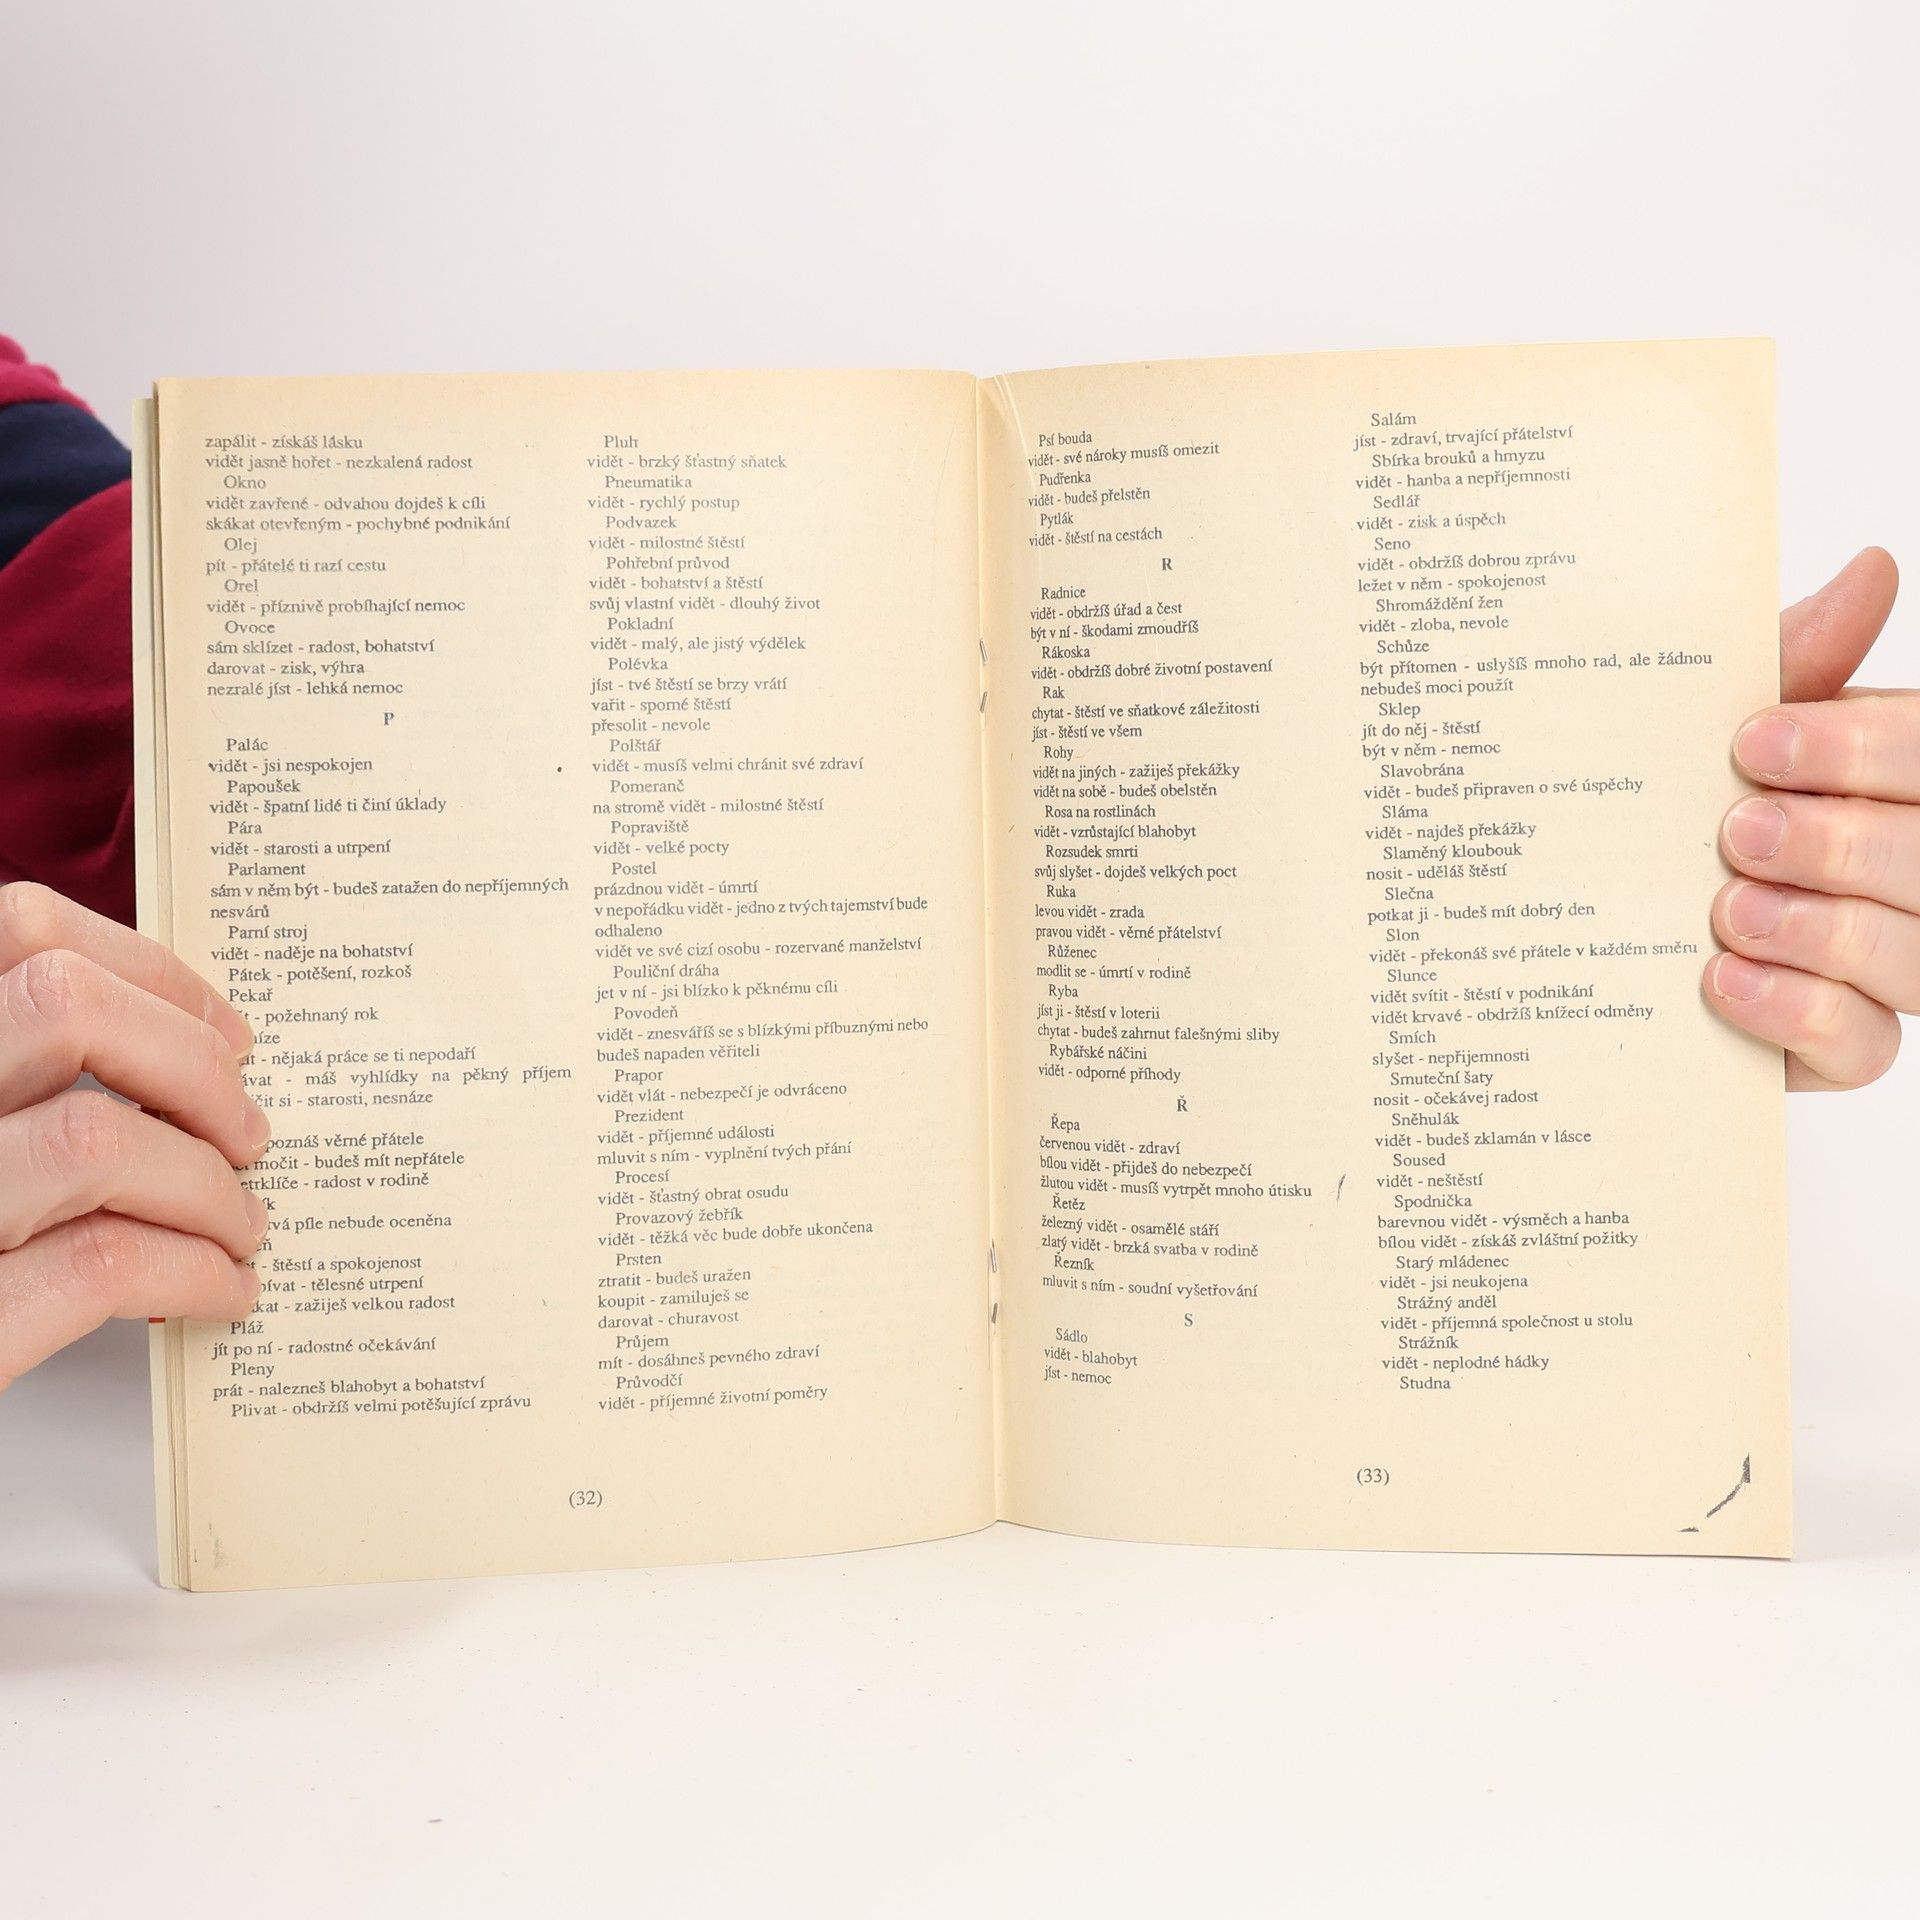 zapálit - získáš lásku
vidět jasně hořet - nezkalená radost
Okno
vidět zavřené - odvahou dojdeš k cíli
skákat otevřeným - pochybné podnikání
Olej
pít - přátelé ti razí cestu
Orel
vidět - příznivě probíhající nemoc
Ovoce
sám sklízet - radost, bohatství
darovat - zisk, výhra
nezralé jíst - lehká nemoc
P
Palác
vidět - jsi nespokojen
Papoušek
vidět - špatní lidé ti činí úklady
Pára
vidět - starosti a utrpení
Parlament
sám v něm být - budeš zatažen do nepříjemných
nesvárů
Parní stroj
vidět - naděje na bohatství
Pátek - potěšení, rozkoš
Pekař
- požehnaný rok
- nějaká práce se ti nepodaří
- máš vyhlídky na pěkný příjem
si - starosti, nesnáze
poznáš věrné přátele
močit - budeš mít nepřátele
- radost v rodině
píle nebude oceněna
- štěstí a spokojenost
- tělesné utrpení
- zažiješ velkou radost
Pláž
jít po ní - radostné očekávání
Pleny
prát - nalezneš blahobyt a bohatství
Plivat - obdržíš velmi potěšující zprávu
Pluh
vidět - brzký šťastný sňatek
Pneumatika
vidět - rychlý postup
Podvazek
vidět - milostné štěstí
Pohřební průvod
vidět - bohatství a štěstí
svůj vlastní vidět - dlouhý život
Pokladní
vidět - malý, ale jistý výdělek
Polévka
jíst - tvé štěstí se brzy vrátí
vařit - sporné štěstí
přesolit - nevole
Polštář
vidět - musíš velmi chránit své zdraví
Pomeranč
na stromě vidět - milostné štěstí
Popraviště
vidět - velké pocty
Postel
prázdnou vidět - úmrtí
v nepořádku vidět - jedno z tvých tajemství bude
odhaleno
vidět ve své cizí osobu - rozervané manželství
Pouliční dráha
jet v ní - jsi blízko k pěknému cíli
Povodeň
vidět - znesváříš se s blízkými příbuznými nebo
budeš napaden věřiteli
Prapor
vidět vlát - nebezpečí je odvráceno
Prezident
vidět - příjemné události
mluvit s ním - vyplnění tvých přání
Procesí
vidět - šťastný obrat osudu
Provazový žebřík
vidět - těžká věc bude dobře ukončena
Prsten
ztratit - budeš uražen
koupit - zamiluješ se
darovat - churavost
Průjem
mít - dosáhneš pevného zdraví
Průvodčí
vidět - příjemné životní poměry
(32)
Psí bouda
vidět - své nároky musíš omezit
Pudřenka
vidět - budeš přelstěn
Pytlák
vidět - štěstí na cestách
R
Radnice
vidět - obdržíš úřad a čest
být v ní - škodami zmoudříš
Rákoska
vidět - obdržíš dobré životní postavení
Rak
chytat - štěstí ve sňatkové záležitosti
jíst - štěstí ve všem
Rohy
vidět na jiných - zažiješ překážky
vidět na sobě - budeš obelstěn
Rosa na rostlinách
vidět - vzrůstající blahobyt
Rozsudek smrti
svůj slyšet - dojdeš velkých poct
Ruka
levou vidět - zrada
pravou vidět - věrné přátelství
Růženec
modlit se - úmrtí v rodině
Ryba
jíst ji - štěstí v loterii
chytat - budeš zahrnut falešnými sliby
Rybářské náčiní
vidět - odporné příhody
Ř
Řepa
červenou vidět - zdraví
bílou vidět - přijdeš do nebezpečí
žlutou vidět - musíš vytrpět mnoho útisku
Řetěz
železný vidět - osamělé stáří
zlatý vidět - brzká svatba v rodině
Řezník
mluvit s ním - soudní vyšetřování
S
Sádlo
vidět - blahobyt
jíst - nemoc
Salám
jíst - zdraví, trvající přátelství
Sbírka brouků a hmyzu
vidět - hanba a nepříjemnosti
Sedlář
vidět - zisk a úspěch
Seno
vidět - obdržíš dobrou zprávu
ležet v něm - spokojenost
Shromáždění žen
vidět - zloba, nevole
Schůze
být přítomen - uslyšíš mnoho rad, ale žádnou
nebudeš moci použít
Sklep
jít do něj - štěstí
být v něm - nemoc
Slavobrána
vidět - budeš připraven o své úspěchy
Sláma
vidět - najdeš překážky
Slaměný klobouk
nosit - uděláš štěstí
Slečna
potkat ji - budeš mít dobrý den
Slon
vidět - překonáš své přátele v každém směru
Slunce
vidět svítit - štěstí v podnikání
vidět krvavé - obdržíš knížecí odměny
Smích
slyšet - nepřijemnosti
Smuteční šaty
nosit - očekávej radost
Sněhulák
vidět - budeš zklamán v lásce
Soused
vidět - neštěstí
Spodnička
barevnou vidět - výsměch a hanba
bílou vidět - získáš zvláštní požitky
Starý mládenec
vidět - jsi neukojena
Strážný anděl
vidět - příjemná společnost u stolu
Strážník
vidět - neplodné hádky
Studna
(33)